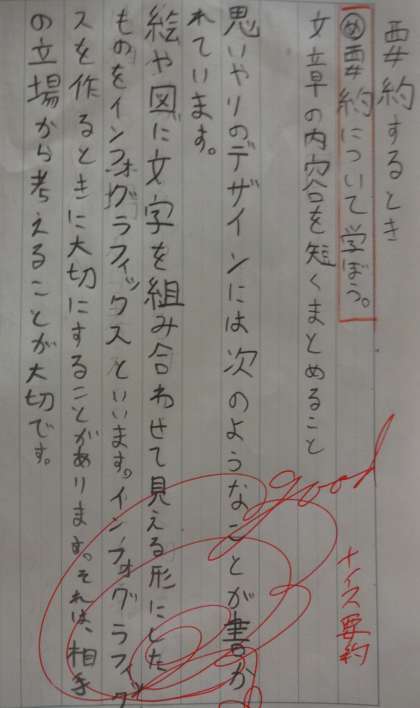 要約するとき
め要約について学ぼう。
文章の内容を短くまとめること
思いやりのデザインには次のようなことが書か
れています。
絵や図に文字を組み合わせて見える形にした
ものをインフォグラフィックスといいます。インフォグラフィック
スを作るときに大切にすることがあります。それは、相手
の立場から考えることが大切です。
good
ナイス要約